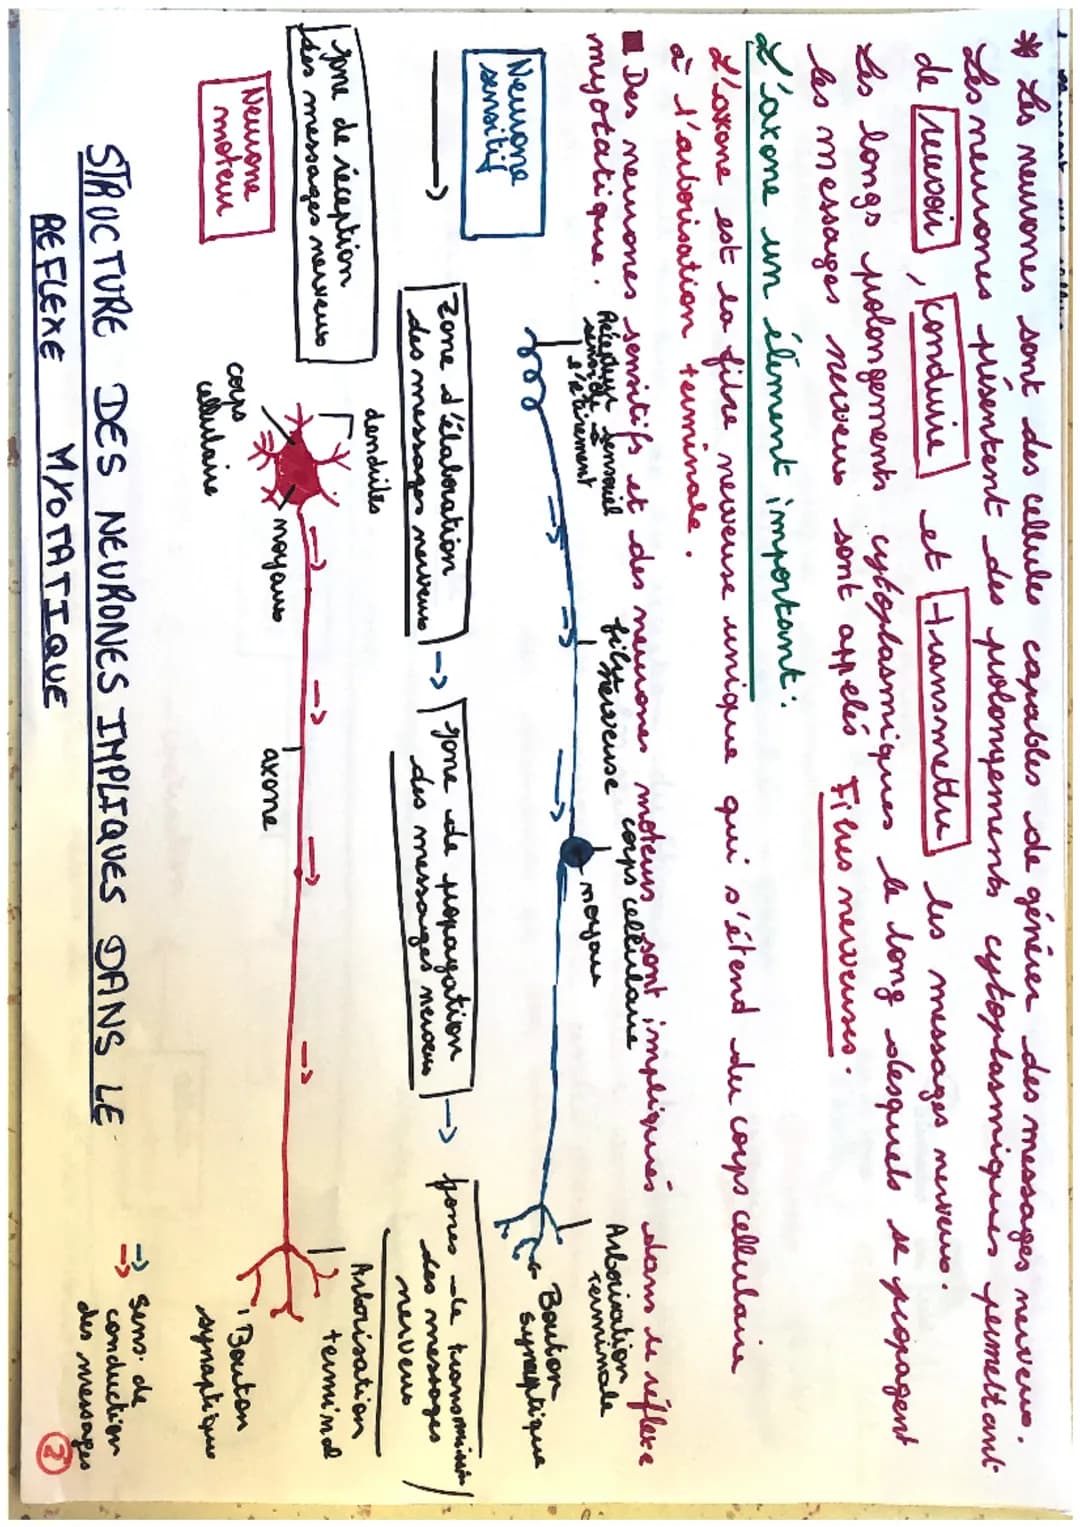 * Les neurones sont des cellules capables de générer des messages nerveux.
Les neurones présentent des prolongements cytoplasmiques permettant
de recevoir, conduire et transmettre les messages nerveux.
Les longs prolongements cytoplasmiques le long desquels se propagent
les messages nerveux sont appelés Fibres nerveuses.
L'axone un élément important:
L'axone est la fibre nerveuse unique qui s'étend du corps cellulaire
à l'arborisation terminale.
■ Des neurones sensitifs et des neurones moteurs sont impliqués dans le réflexe
myotatique.
Neurone
sensitif
Récepteur sensoriel
sensible à
l'étirement
fibre
nerveuse
corps cellulaire
noyau
Arborisation
terminale
Bouton
synaptique
zone de réception
des messages nerveux
zone d'élaboration
des messages nerveux
zone de propagation
des messages nerveux
zones de transmission
des messages
nerveux
Neurone
moteur
dendrites
corps
cellulaire
noyau
axone
Arborisation
terminal
Bouton
synaptique
STRUCTURE DES NEURONES IMPLIQUES DANS LE
REFLEXE MYOTATIQUE
⇒ Sens de
⇒ conduction
des messages
2